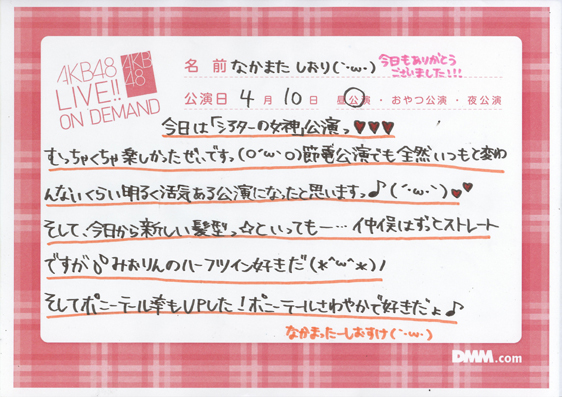 AKB48
LIVE!!
ON DEMAND
AKB
48
名前 なかまた しおり(`･ω･)
今日もありがとう
ございました!!!
公演日 4月10日 昼公演・おやつ公演・夜公演
今日は「シアターの女神」公演っ♥♥♥
むっちゃくちゃ楽しかったぜぃですっ(○´ω`○)節電公演でも全然いつもと変わ
んないくらい明るく活気ある公演になったと思いますっ♪(´･ω･`)♥♥
そして、今日から新しい髪型っ☆といってもー… 仲俣はずっとストレート
ですが みおりんのハーフツイン好きだ(*^ω^*)ノ
そしてポニーテール率もUPした!ポニーテールさわやかで好きだょ♪
なかまったーしおすけ(`･ω･)
DMM.com